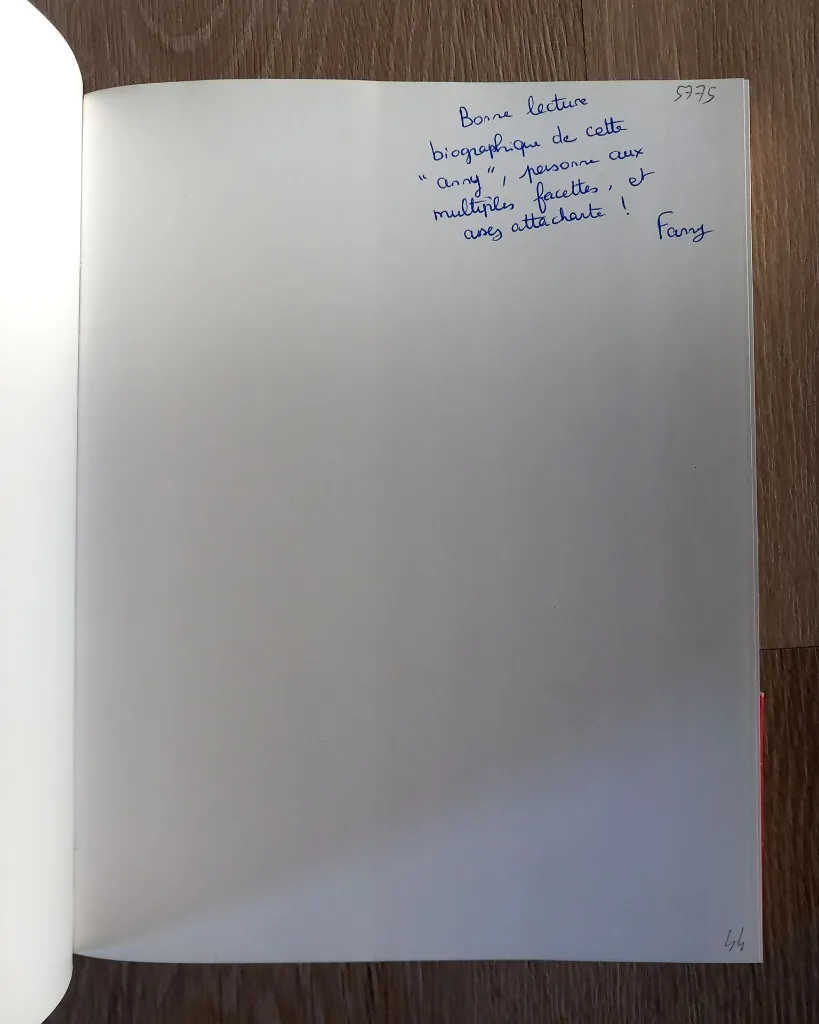 5775
Bonne lecture
biographique de cette
"anny", personne aux
multiples facettes, et
assez attachante !
Fanny
44